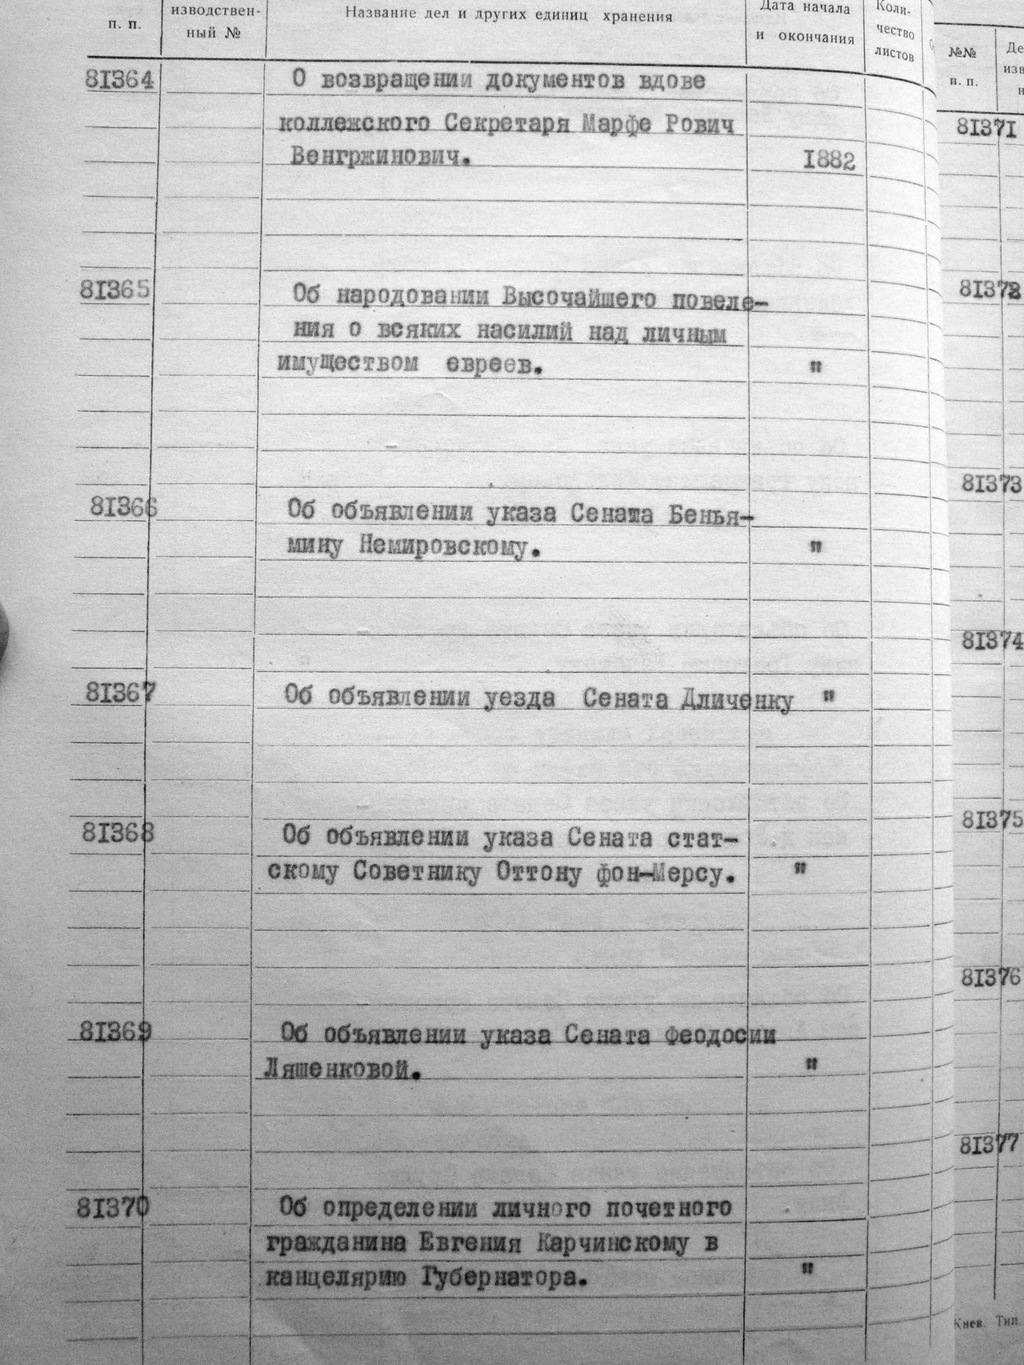 п. п.
изводствен-
ный №
Название дел и других единиц хранения
Дата начала
и окончания
Коли-
чество
листов
81364
О возвращении документов вдове
коллежского Секретаря Марфе Рович
Венгржинович.
1882
81365
Об народовании Высочайшего повеле-
ния о всяких насилий над личным
имуществом евреев.
"
81366
Об объявлении указа Сената Бенья-
мину Немировскому.
"
81367
Об объявлении уезда Сената Дличенку "
81368
Об объявлении указа Сената стат-
скому Советнику Оттону фон-Мерсу.
"
81369
Об объявлении указа Сената Феодосии
Ляшенковой.
"
81370
Об определении личного почетного
гражданина Евгения Карчинскому в
канцелярию Губернатора.
"
№№
п. п.
Де
изв
н
81371
81372
81373
81374
81375
81376
81377
Киев. Тип.